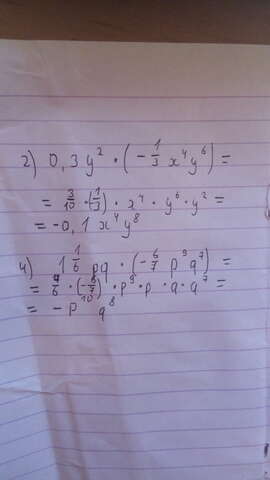 2) 0,3 y² · (- 1/3 x⁴y⁶) =
= 3/10 · (- 1/3) · x⁴ · y⁶ · y² =
= -0,1 x⁴y⁸
4) 1 1/6 pq · (- 6/7 p⁹ q⁷) =
· p⁹ · p · q · q⁷ =
= - p q⁸